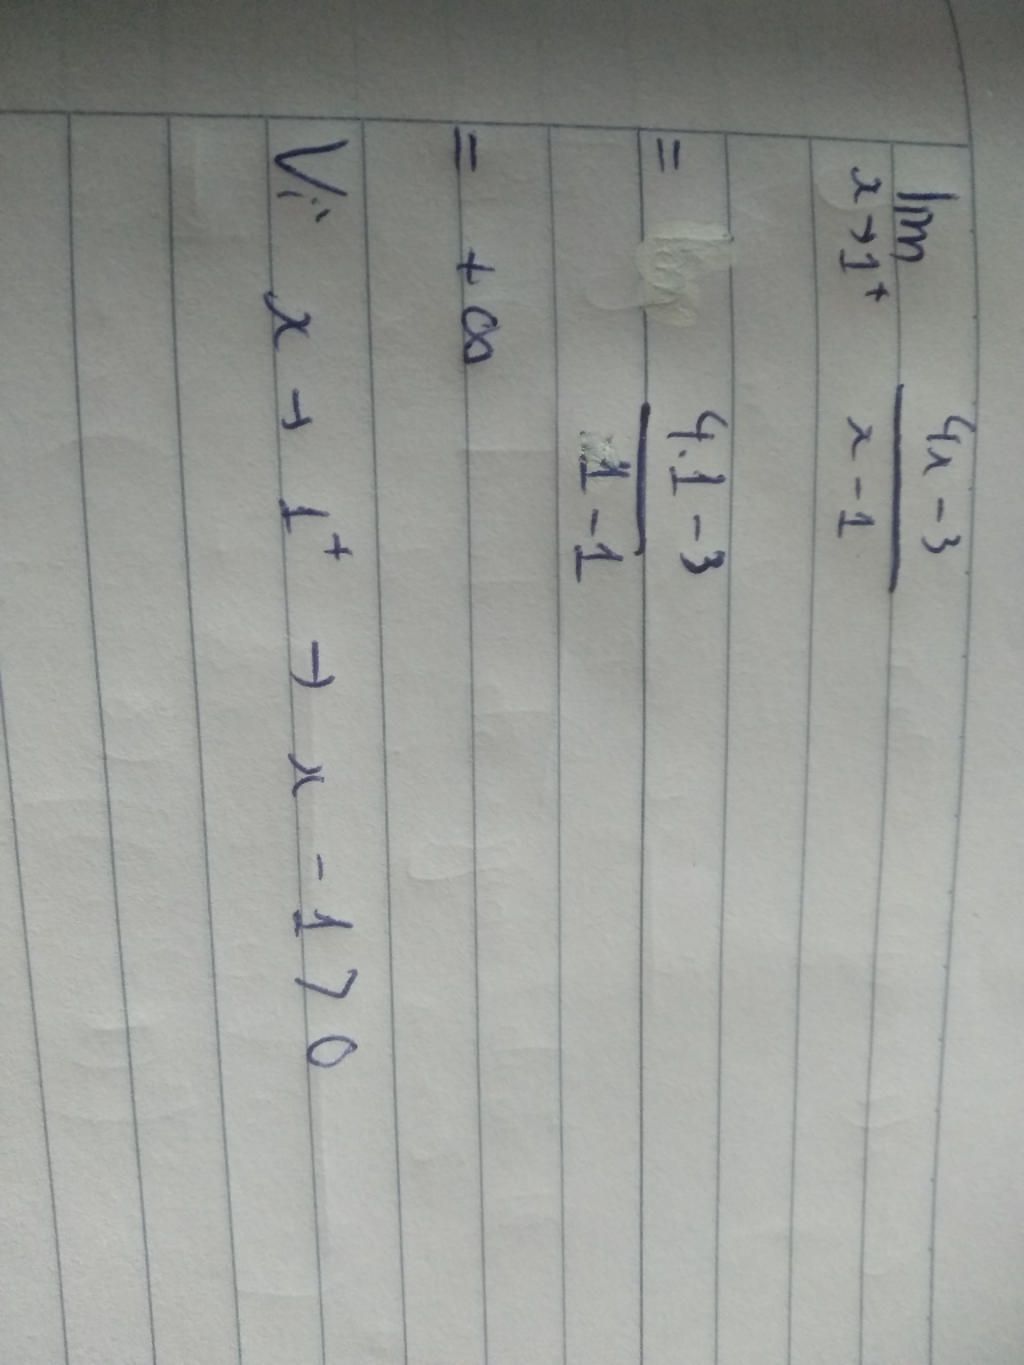 lim 4x - 3
x→1⁺ x - 1
= 4.1 - 3
1 - 1
= + ∞
Vì x → 1⁺ → x - 1 > 0